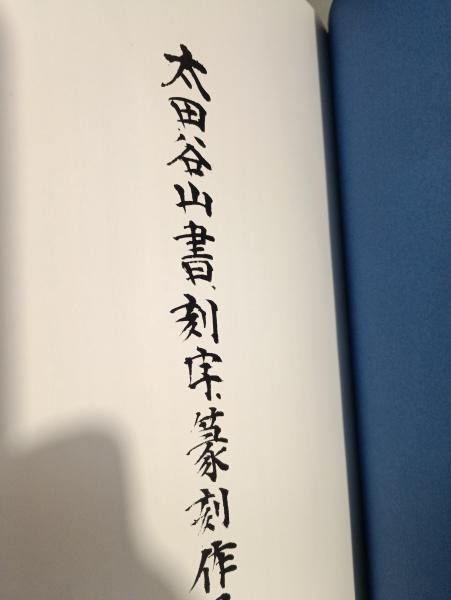 太田谷山書、刻字、篆刻作